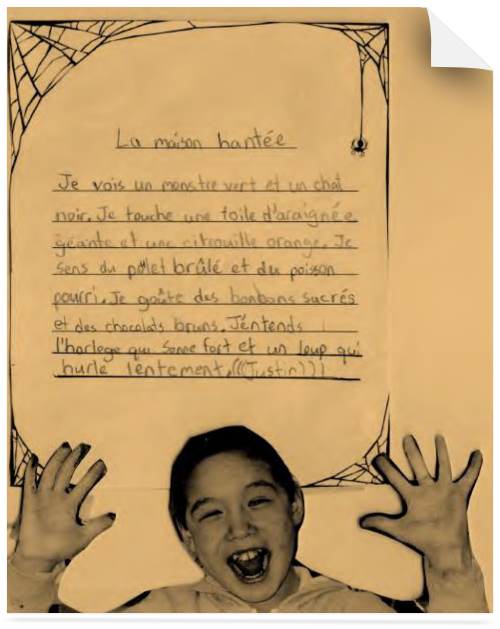 La maison hantée
Je vois un monstre vert et un chat
noir. Je touche une toile d'araignée
géante et une citrouille orange. Je
sens du pôlet brûlé et du poisson
pourri. Je goûte des bonbons sucrés
et des chocolats bruns. J'éntends
l'horloge qui sonne fort et un loup qui
hurle lentement. (((Justin)))